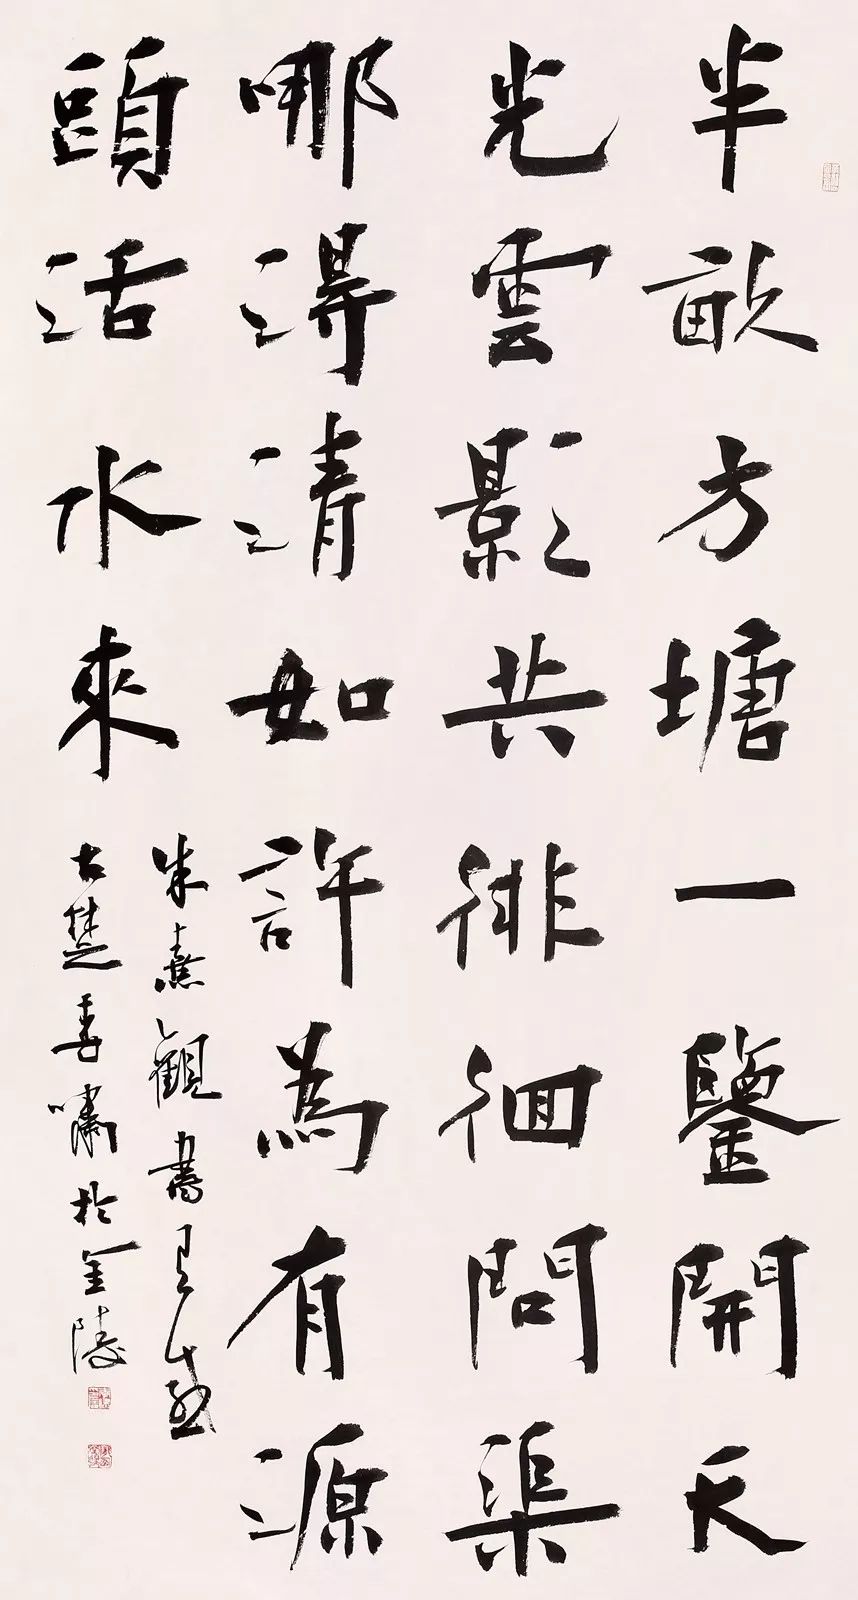 半畝方塘一鑒開天
光雲影共徘徊問渠
哪得清如許為有源
頭活水來
朱熹觀書有感
古楚孫嘯於金陵